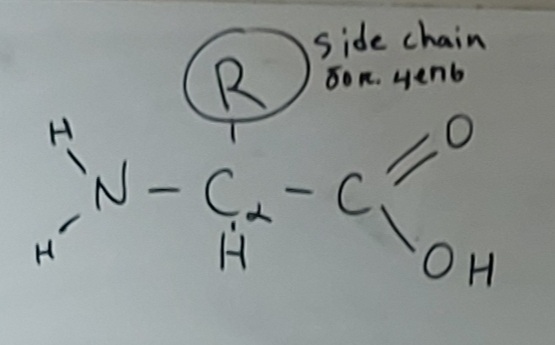 side chain
R
бок. цепь
H
O
N – Cα – C
H
H
OH